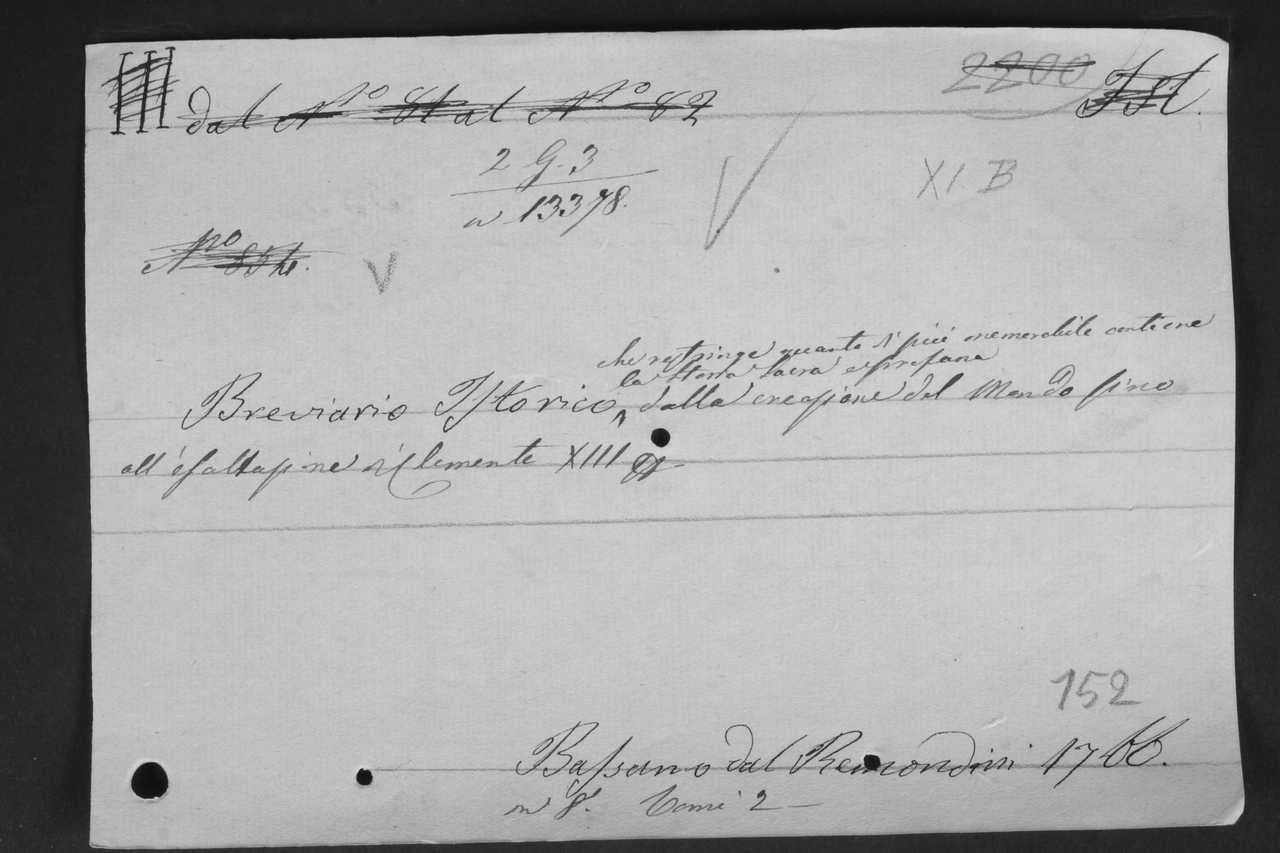 III dal Nro 81 al Nro 82
2200 Ist.
2 G. 3
n 13378.
XI B
Nro
che restringe quanto di più memorabile contiene
la storia sacra e profana
Breviario Istorico dalla creazione del Mondo fino
all' esaltazione di Clemente XIII
152
Bassano dal Remondini 1766.
in 8º. Tomi 2 —